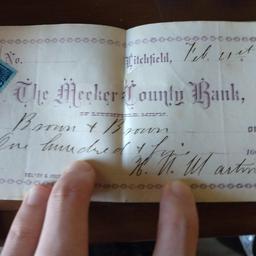 No. Litchfield, Feb. 21st
The Meeker County Bank,
OF LITCHFIELD, MINN.
Brown & Brown
One hundred &
H. N. Martin